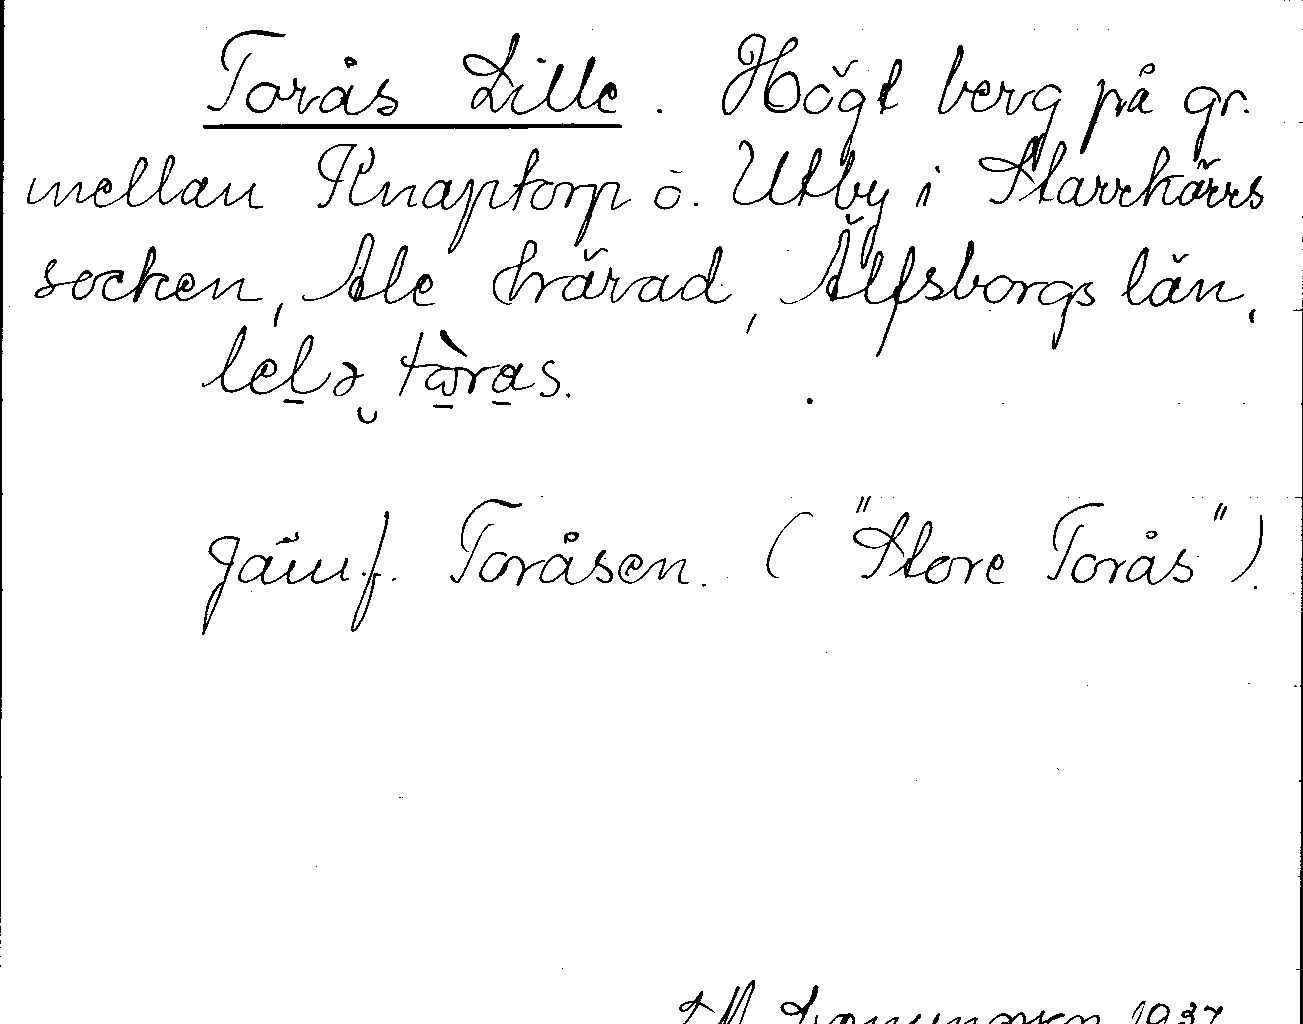 Torås Lille. Högt berg på gr.
mellan Knaptorp o. Utby i Starrkärrs
socken, Ale härad, Älfsborgs län.
lelə tòras.
Jämf. Toråsen. ("Store Torås").
1937